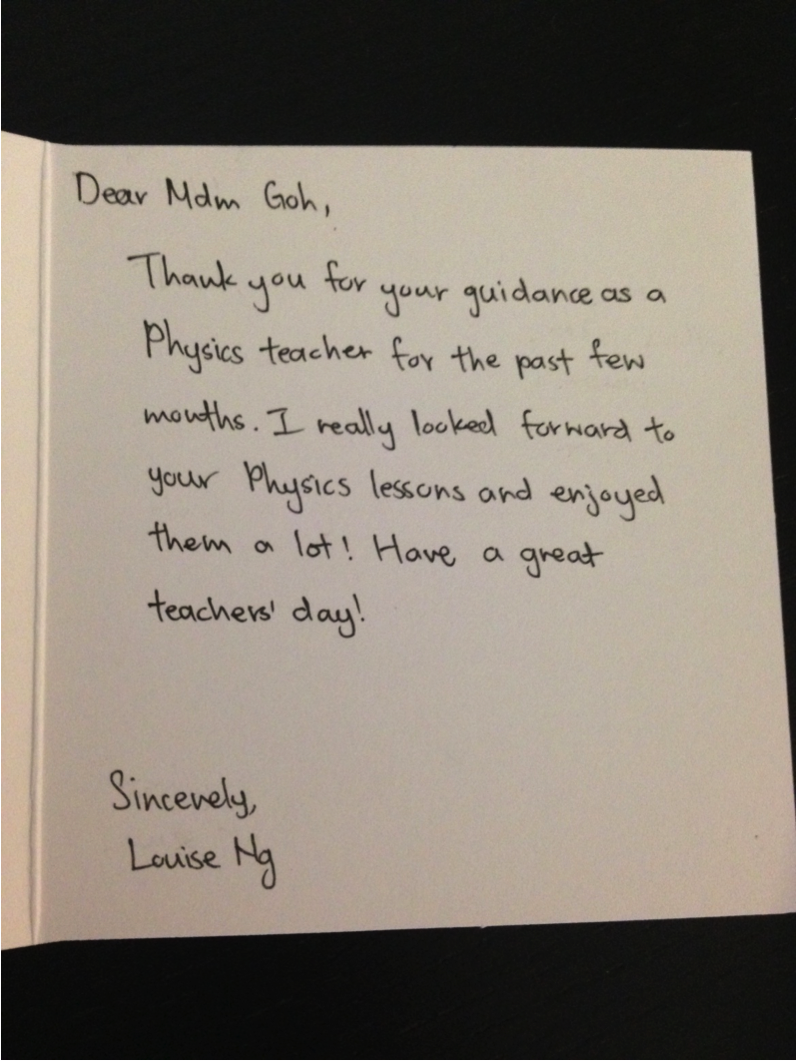 Dear Mdm Goh,
Thank you for your guidance as a
Physics teacher for the past few
months. I really looked forward to
your Physics lessons and enjoyed
them a lot! Have a great
teachers' day!
Sincerely,
Louise Ng